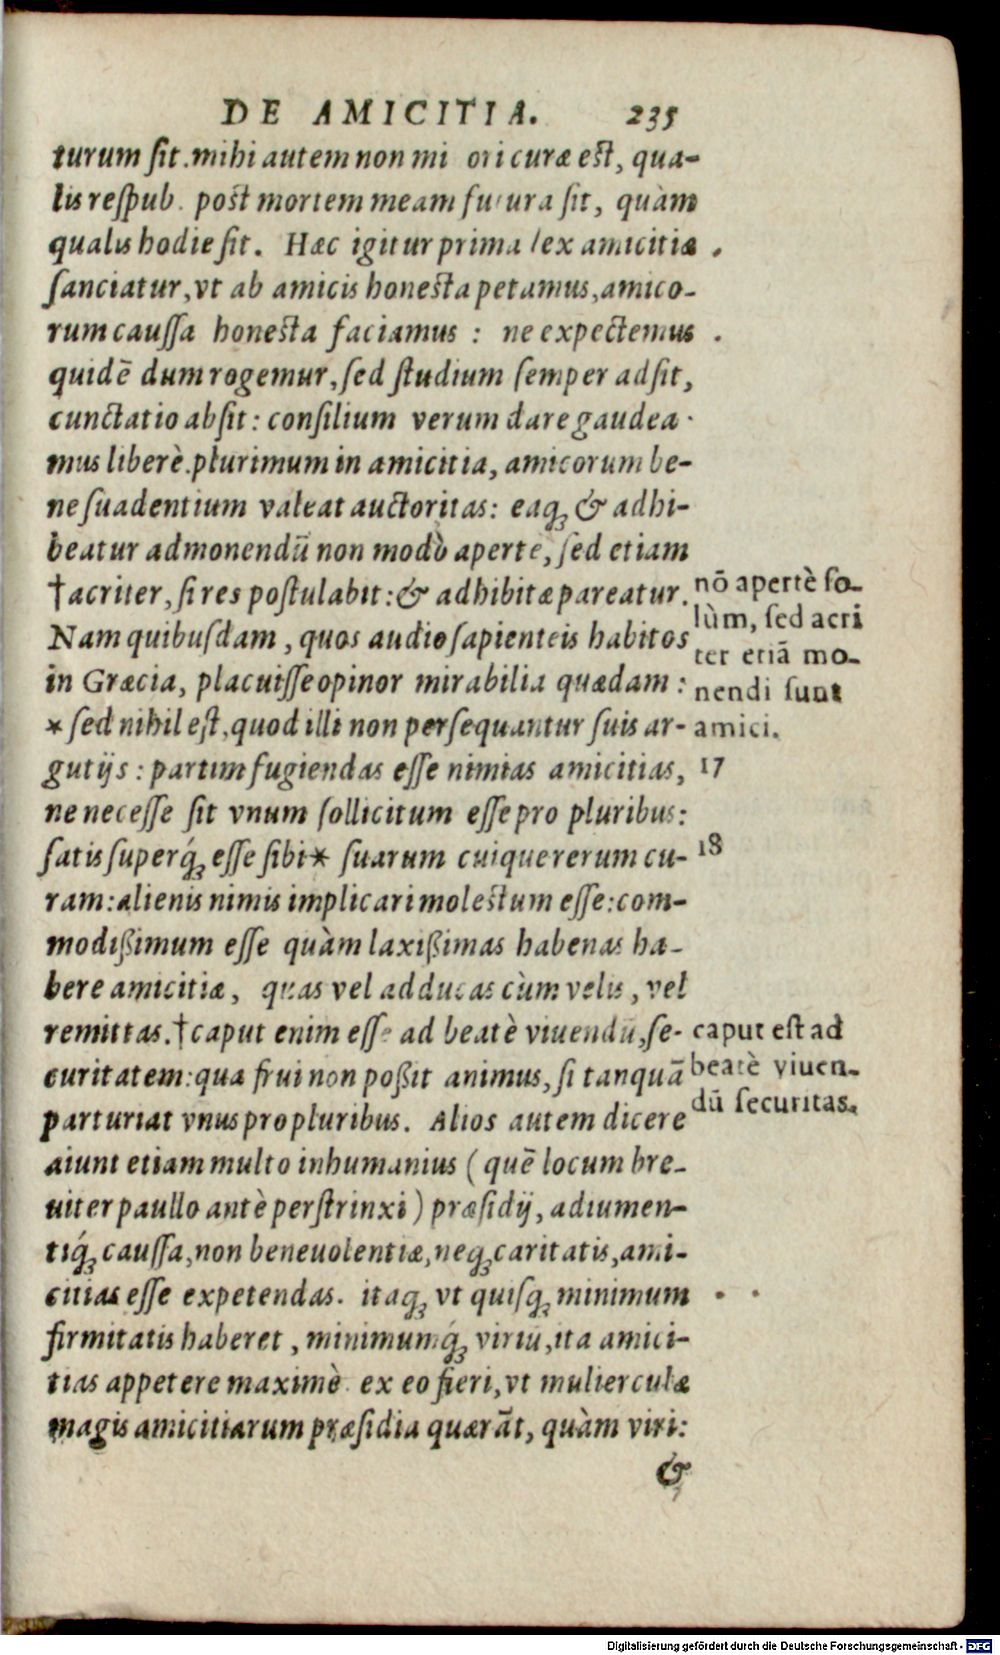 DE AMICITIA. 235
turum sit. mihi autem non mi ori curæ est, qua-
lis respub. post mortem meam futura sit, quàm
qualis hodie sit. Hæc igitur prima lex amicitiæ
sanciatur, vt ab amicis honesta petamus, amico-
rum caussa honesta faciamus : ne expectemus
quidē dum rogemur, sed studium semper adsit,
cunctatio absit: consilium verum dare gaudea-
mus liberè. plurimum in amicitia, amicorum be-
ne suadentium valeat auctoritas: eaq́; & adhi-
beatur admonendū non modò aperte, sed etiam
†acriter, si res postulabit: & adhibitæ pareatur.
nō apertè so-
lùm, sed acri
ter etiā mo-
nendi sunt
amici.
Nam quibusdam, quos audio sapienteis habitos
in Græcia, placuisse opinor mirabilia quædam :
* sed nihil est, quod illi non persequantur suis ar-
17
gutijs : partim fugiendas esse nimias amicitias,
ne necesse sit vnum sollicitum esse pro pluribus:
satis superq́; esse sibi* suarum cuique rerum cu-
18
ram: alienis nimis implicari molestum esse: com-
modißimum esse quàm laxißimas habenas ha-
bere amicitiæ, quas vel adducas cùm velis, vel
remittas. †caput enim esse ad beatè viuendū, se-
caput est ad
beatè viuen-
dū securitas.
curitatem: qua frui non poßit animus, si tanquā
parturiat vnus pro pluribus. Alios autem dicere
aiunt etiam multo inhumanius (quē locum bre-
uiter paullo antè perstrinxi) præsidij, adiumen-
tiq́; caussa, non beneuolentiæ, neq; caritatis, ami-
citias esse expetendas. itaq; vt quisq; minimum
firmitatis haberet, minimumq́; viriū, ita amici-
tias appetere maximè. ex eo fieri, vt mulierculæ
magis amicitiarum præsidia quærāt, quàm viri:
&
Digitalisierung gefördert durch die Deutsche Forschungsgemeinschaft - DFG